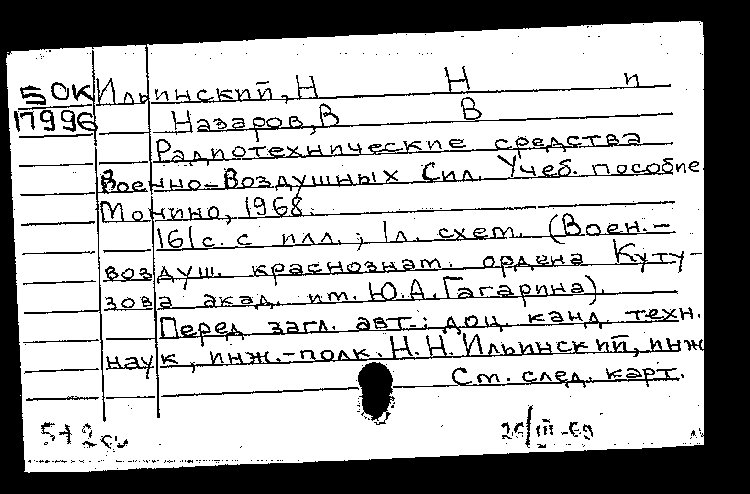 5 ОК Ильинский, Н Н и
17996 Назаров, В В
Радиотехнические средства
Военно-Воздушных Сил. Учеб. пособие
Монино, 1968.
161 с. с илл.; 1 л. схем. (Воен.-
воздуш. краснознам. ордена Куту-
зова акад. им. Ю.А. Гагарина).
Перед загл. авт.: доц. канд. техн.
наук, инж.-полк. Н.Н. Ильинский, инж
См. след. карт.
5+2 26/III-69